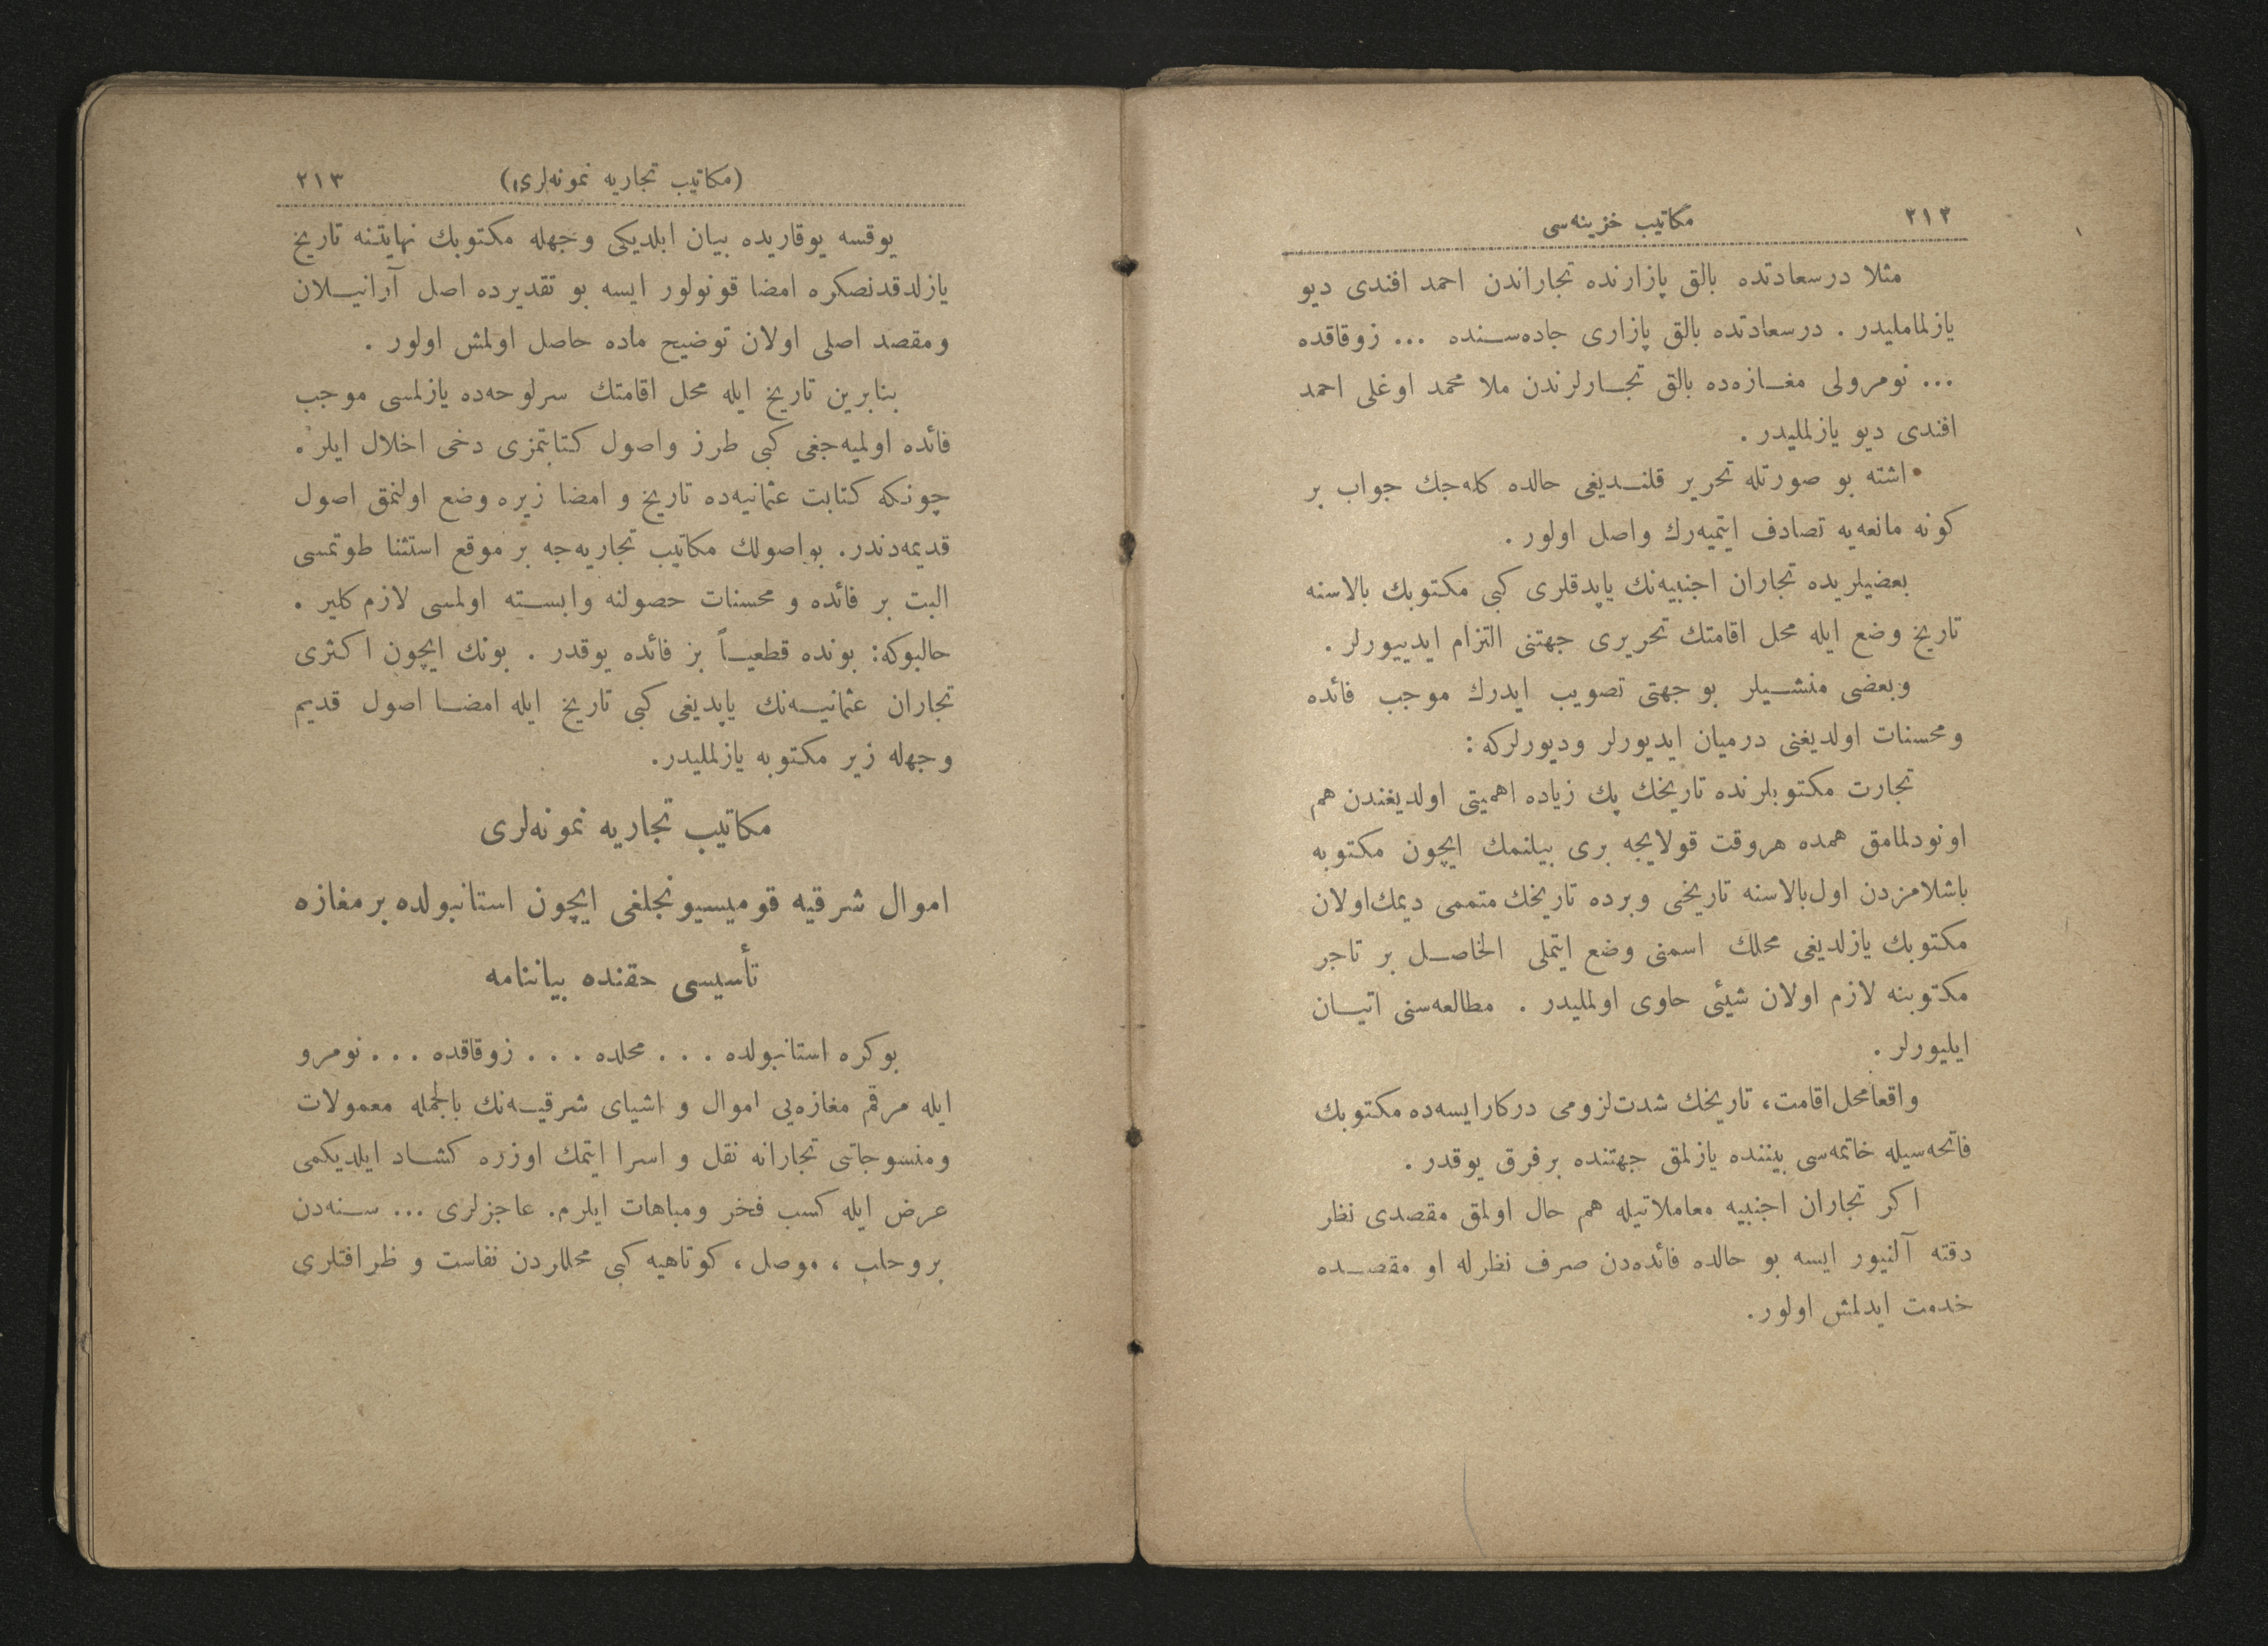 ٢١٢
مكاتيب خزينه‌سى
مثلا درسعادتده بالق پازارنده تجاراندن احمد افندى ديو
يازلماملیدر . درسعادتده بالق پازارى جاده‌سنده ... زوقاقده
... نومرولى مغازه‌ده بالق تجارلرندن ملا محمد اوغلى احمد
افندى ديو يازلمليدر .
اشته بو صورتله تحرير قلنديغى حالده كله‌جك جواب بر
كونه مانعه‌يه تصادف ايتميه‌رك واصل اولور .
بعضيلريده تجاران اجنبيه‌نك ياپدقلرى كبى مكتوبك بالاسنه
تاريخ وضع ايله محل اقامتك تحريرى جهتنى التزام ايدييورلر .
وبعضى منشيلر بو جهتى تصويب ايدرك موجب فائده
ومحسنات اولديغنى درميان ايديورلر وديورلركه :
تجارت مكتوبلرنده تاريخك پك زياده اهميتى اولديغندن هم
اونودلمامق همده هروقت قولايجه برى بيلنمك ايچون مكتوبه
باشلامزدن اول‌بالاسنه تاريخى وبرده تاريخك متممى ديمك‌اولان
مكتوبك يازلديغى محلك اسمنى وضع ايتملى الخاصل بر تاجر
مكتوبنه لازم اولان شيئى حاوى اولمليدر . مطالعه‌سنى اتيان
ايليورلر .
واقعا محل‌اقامت، تاريخك شدت‌لزومى دركارايسه‌ده مكتوبك
فاتحه‌سيله خاتمه‌سى بيننده يازلمق جهتنده برفرق يوقدر .
اكر تجاران اجنبيه معاملاتيله هم حال اولمق مقصدى نظر
دقته آلنيور ايسه بو حالده فائده‌دن صرف نظرله او مقصده
خدمت ايدلمش اولور.
(مكاتيب تجاريه نمونه‌لرى)
٢١٣
يوقسه يوقاريده بيان ابلديكى وجهله مكتوبك نهايتنه تاريخ
يازلدقدنصكره امضا قونولور ايسه بو تقديرده اصل آرانيلان
ومقصد اصلى اولان توضيح ماده حاصل اولمش اولور .
بنابرين تاريخ ايله محل اقامتك سرلوحه‌ده يازلمسى موجب
فائده اولميه‌جغى كبى طرز واصول كتابتمزى دخى اخلال ايلر .
چونكه كتابت عثمانيه‌ده تاريخ و امضا زيره وضع اولنمق اصول
قديمه‌دندر. بواصولك مكاتيب تجاريه‌جه بر موقع استثنا طوتمسى
البت بر فائده و محسنات حصولنه وابسته اولمسى لازم كلير .
حالبوكه: بونده قطعياً بر فائده يوقدر . بونك ايچون اكثرى
تجاران عثمانيه‌نك ياپديغى كبى تاريخ ايله امضا اصول قديم
وجهله زير مكتوبه يازلمليدر.
مكاتيب تجاريه نمونه‌لرى
اموال شرقيه قوميسيونجلغى ايچون استانبولده برمغازه
تأسيسى حقنده بياننامه
بوكره استانبولده . . . محلده . . . زوقاقده . . . نومرو
ايله مرقم مغازه‌يى اموال و اشياى شرقيه‌نك بالجمله معمولات
ومنسوجاتى تجارانه نقل و اسرا ايتمك اوزره كشاد ايلديكمى
عرض ايله كسب فخر ومباهات ايلرم. عاجزلرى ... سنه‌دن
بروحلب ، موصل، كوتاهيه كبى محللردن نفاست و ظرافتلرى